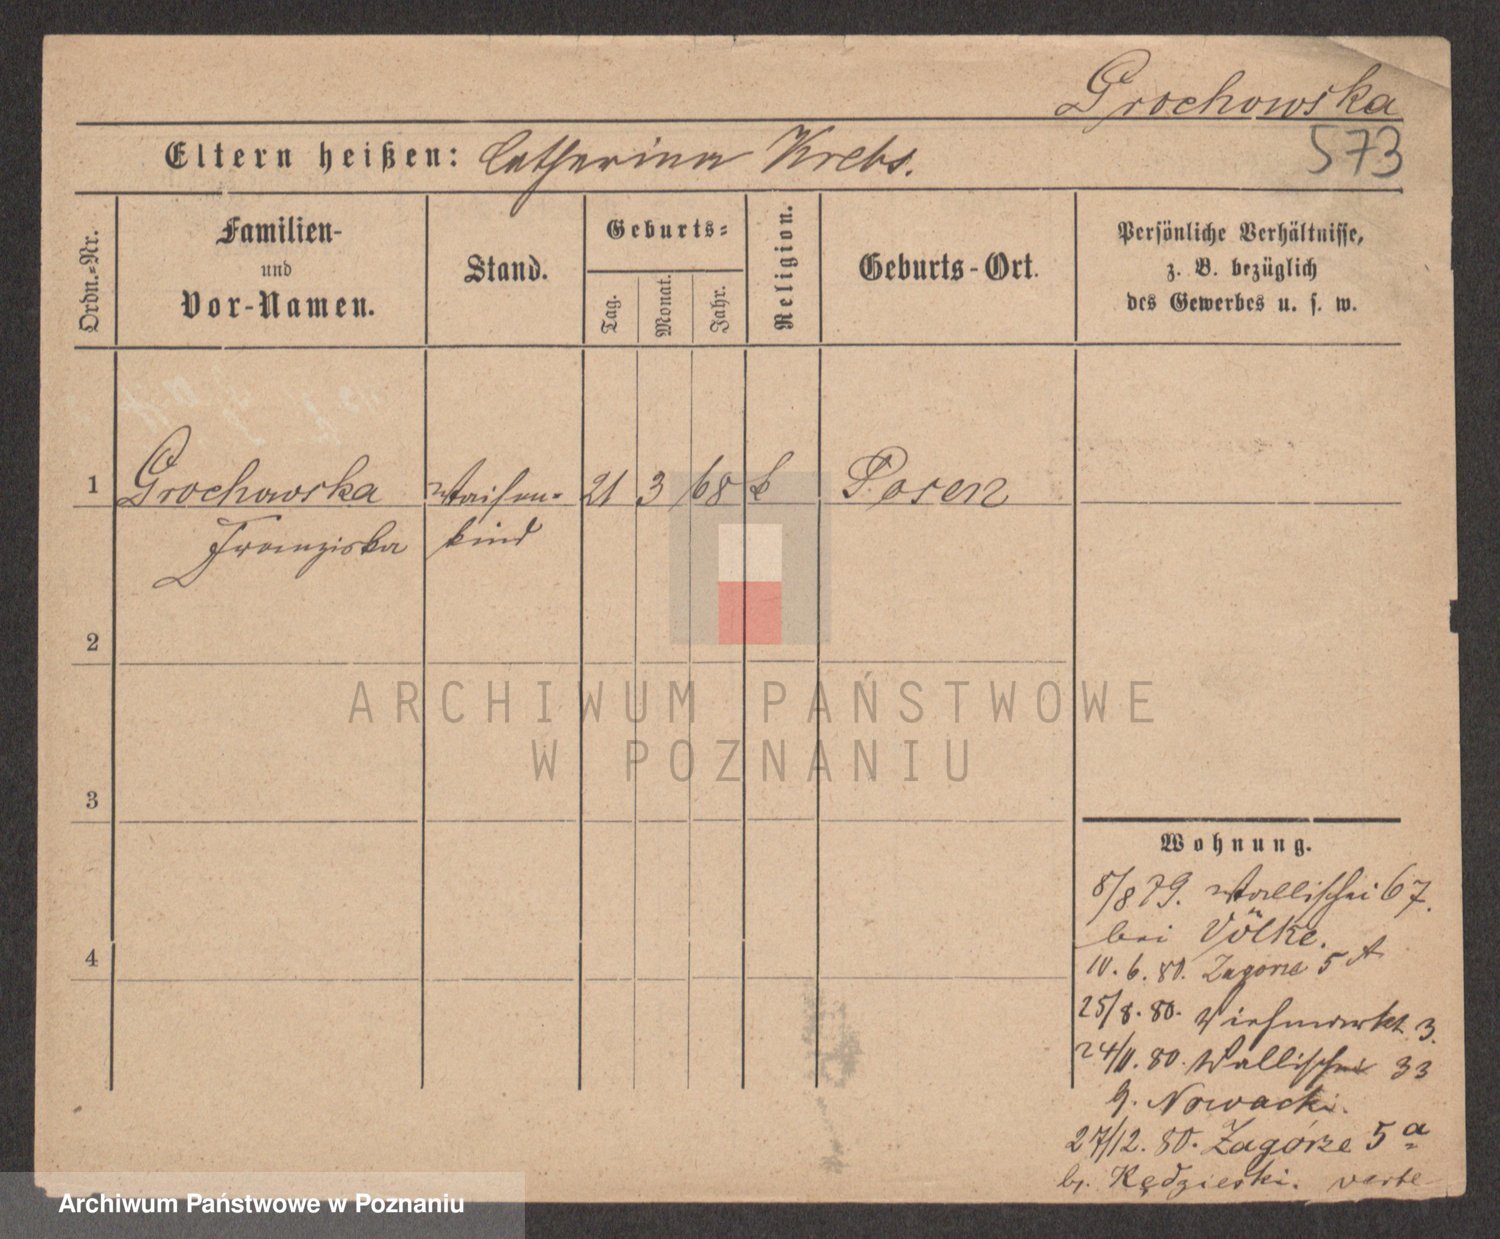 Grochowska
573
Eltern heißen: Catharina Krebs.
Ordn.-Nr.
Familien-
und
Vor-Namen.
Stand.
Geburts-
Tag.
Monat.
Jahr.
Religion.
Geburts-Ort.
Persönliche Verhältnisse,
z. B. bezüglich
des Gewerbes u. s. w.
1 Grochowska Waisen- 21 3 68 k Posen
Franziska kind
2
ARCHIWUM PAŃSTWOWE
W POZNANIU
3
Wohnung.
8/8 79. Wallischei 67.
bei Völke.
4
10. 6. 80. Zagorze 5 A
25/8. 80. Viehmarkt 3.
24/11. 80. Wallischei 33
Nowacki.
27/12. 80. Zagórze 5 a
b. Kędzierski. verte
Archiwum Państwowe w Poznaniu